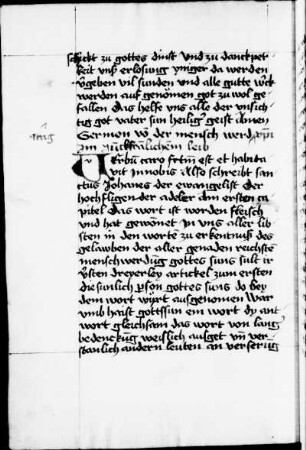 schicht zu gottes dinst und zu danckper
keit unß erlosung yniger da werden
vgeben vil sunden und alle gutte werck
werden auf genomen got zu wol ge
fallen Das helfe uns alle der unsich
tig got vater sun heiliger geist Amen
Sermon wy der mensch werd
im Junckfrawlichem leib
Verbũ caro factm̃ est et habita
vit in nobis Also schreibt san
ctus Johanes der ewangelist Der
hochfligen der adeler am ersten ca
pitel Das wort ist worden fleisch
und hat gewanet in uns aller lib
sten in den worte zu erkentnuß des
gelawben der aller genaden reichste
menschwerdũg gottes suns sult ir
wysten dreyerley artickel zum ersten
die sunlich psõn gottes suns do bey
dem wort wirt ausgenomen War
umb haist gottssun ein wort dy ant
wort gleichsam das wort von lang
bedenckũg weislich ausget uñ ver
stanlich andern leuten an